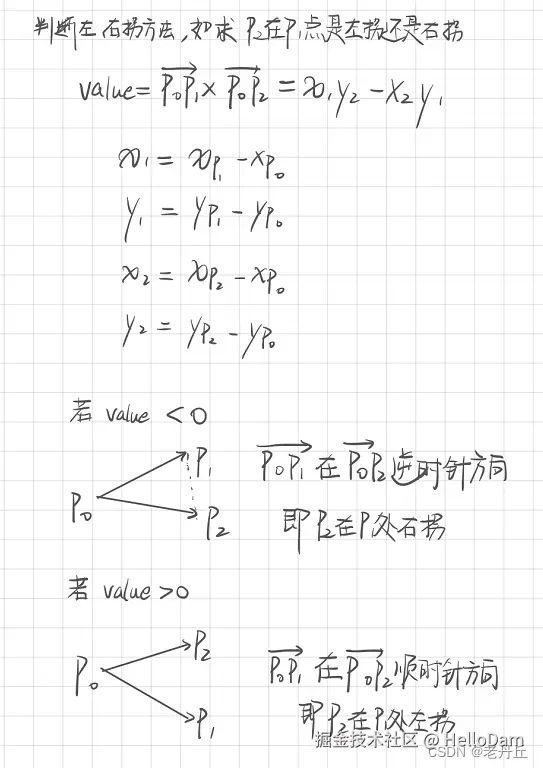 判断左右拐方法,如求P₂在P₁点是左拐还是右拐
value = P₀P₁ × P₀P₂ = x₁y₂ - x₂y₁
x₁ = xₚ₁ - xₚ₀
y₁ = yₚ₁ - yₚ₀
x₂ = xₚ₂ - xₚ₀
y₂ = yₚ₂ - yₚ₀
若 value < 0
P₁
P₀
P₂
P₀P₁ 在 P₀P₂ 逆时针方向
即P₂在P处右拐
若 value > 0
P₂
P₀
P₁
P₀P₁ 在 P₀P₂ 顺时针方向
即P₂在P处左拐
掘金技术社区 @ HelloDam
CSDN @老丹丘